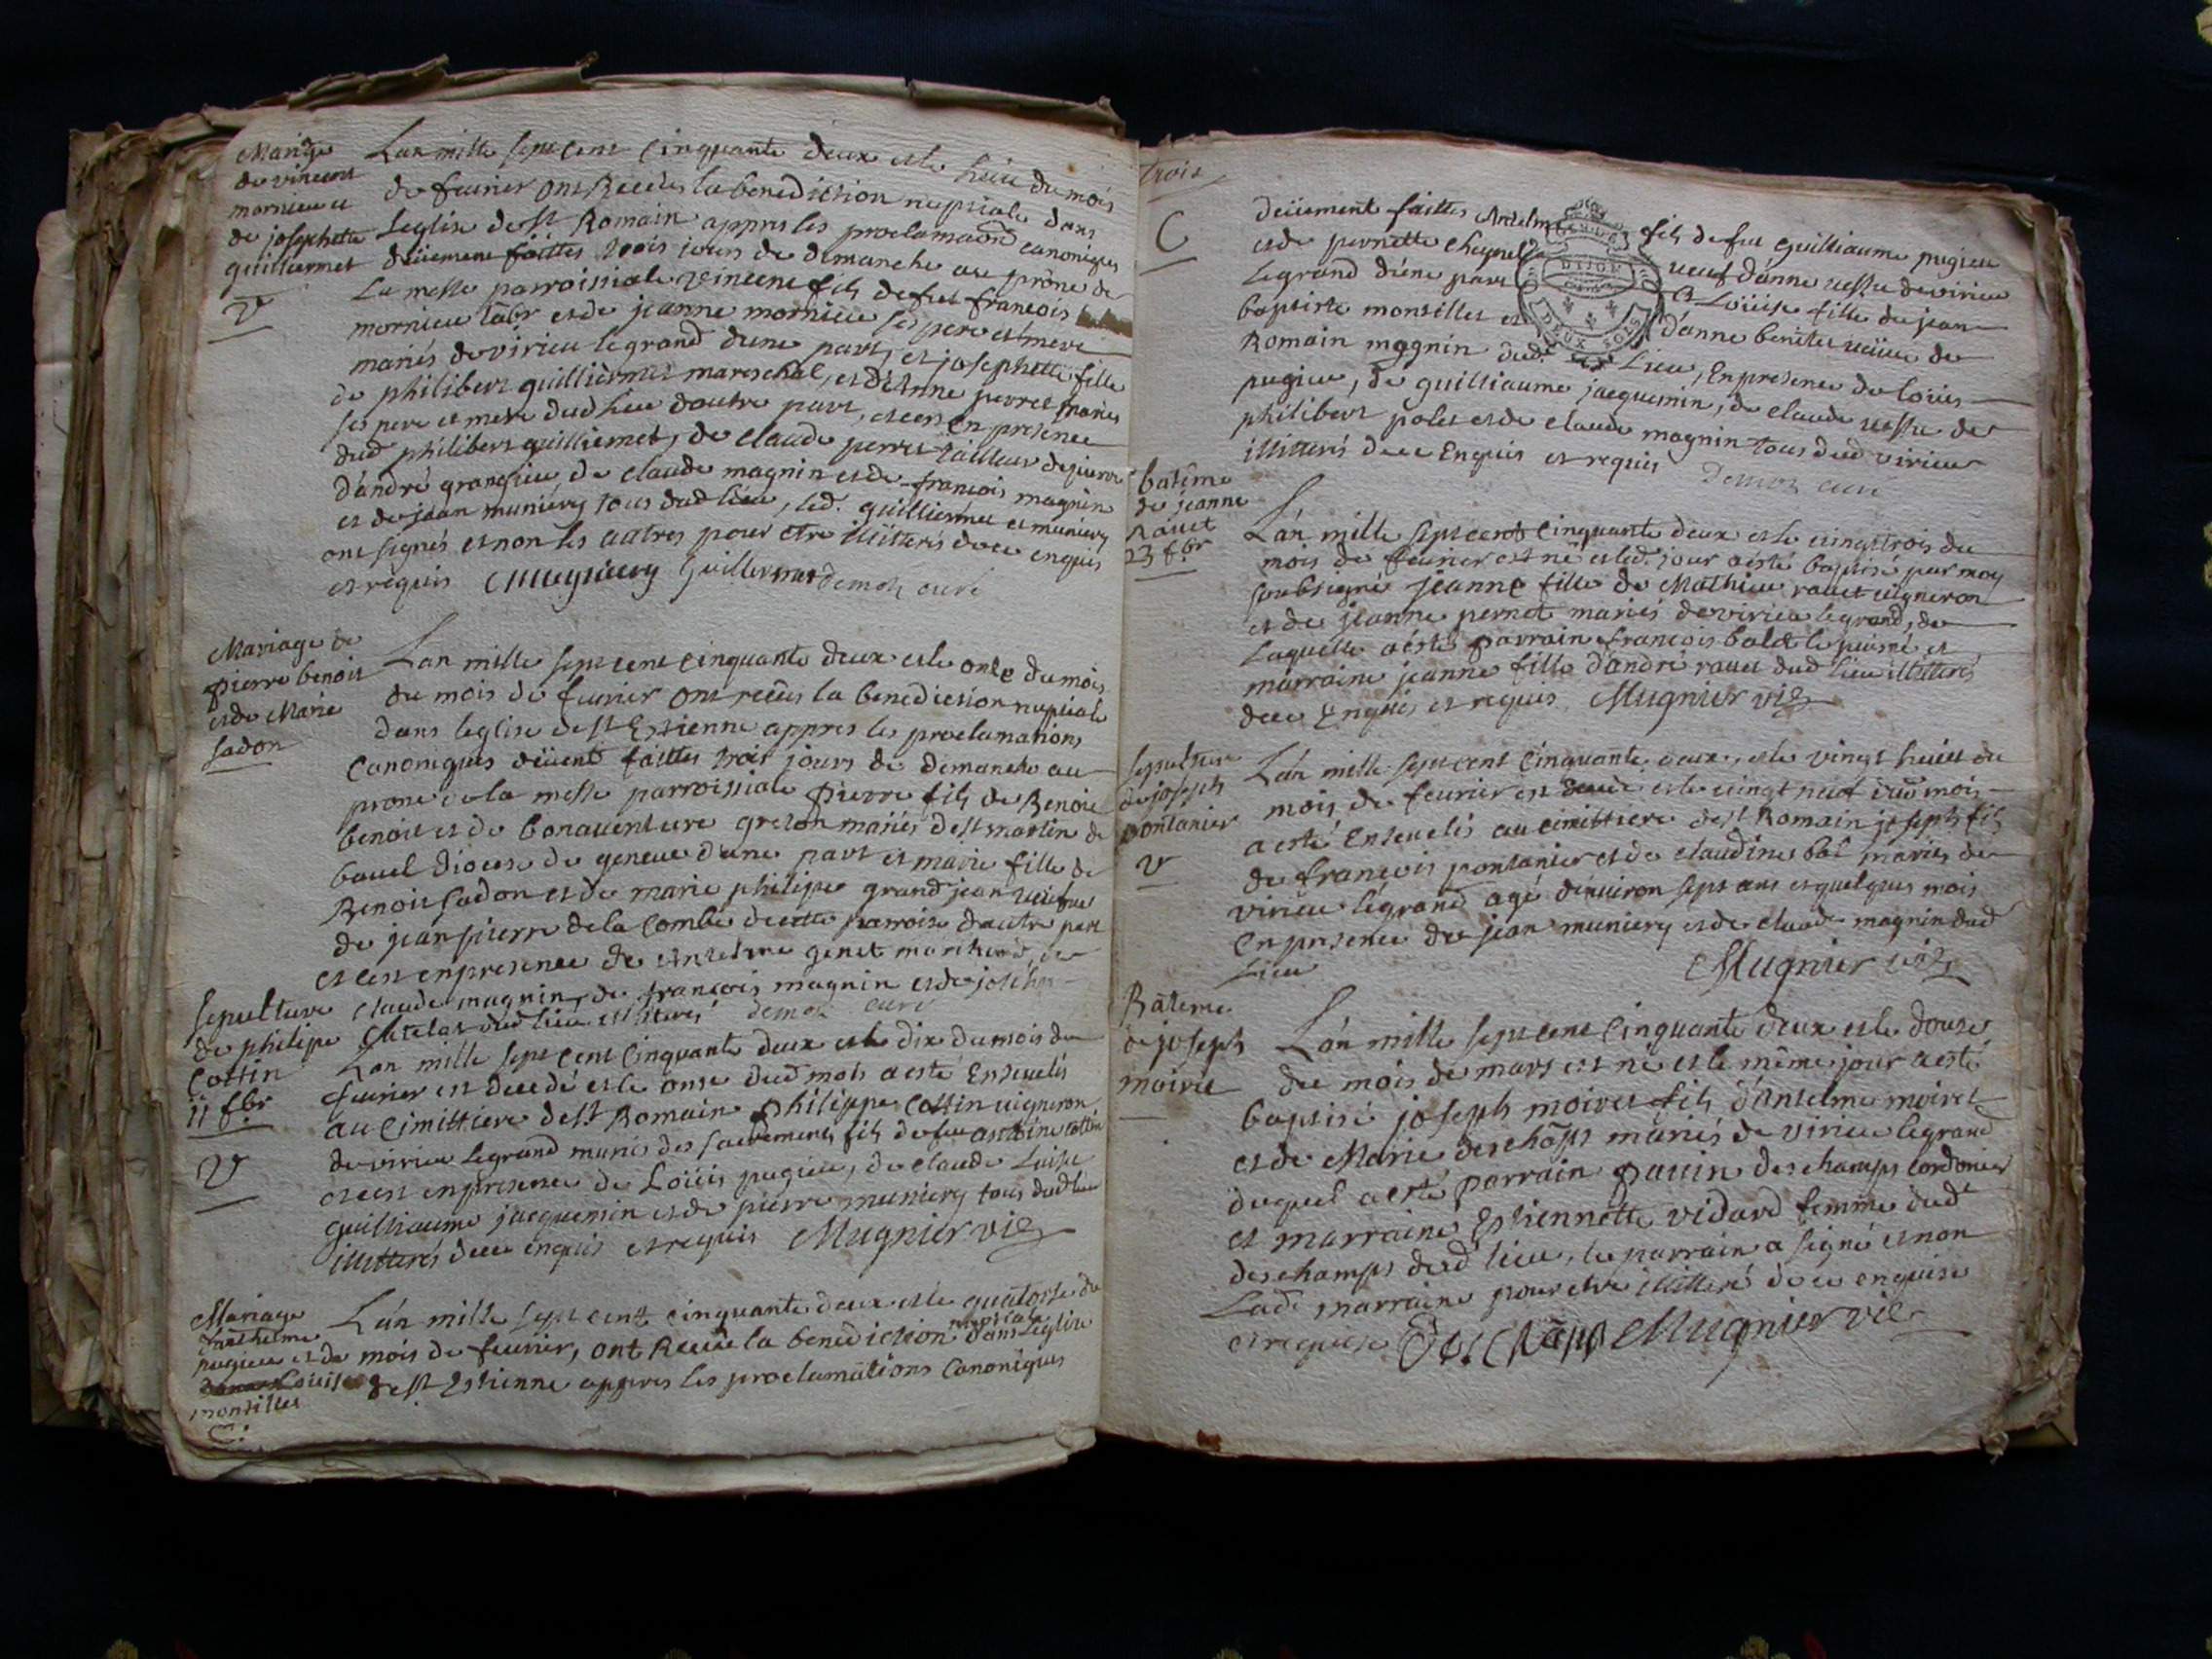 Mariage
de vincent
mornieu et
de josephette
guilliermet
V
Lan mille sept cent cinquante deux et le huit du mois
de feurier ont Receües la benediction nuptiale dans
Leglise de st Romain appres les proclamaons canoniques
deüement faittes trois jours de dimanche au prône de
La messe parroissiale vincent fils de fut francois
mornieu labr et de jeanne mornieu ses pere et mere
mariés de virieu le grand dune part, et josephette fille
de philibert guilliermet mareschal, et d'Anne perret mariés
ses pere et mere dud lieu dautre part, et ce en presence
dud philibert guilliermet, de claude perret tailleur de pierre
d'andré grangieu, de claude magnin et de francois magnin
et de jean muniery tous dud lieu, led. guilliermet et muniery
ont signés et non les autres pour etre illitterés de ce enquis
et requis Muguiery Guillermet demoz curé
Mariage de
pierre benoit
et de Marie
sadon
Lan mille sept cent cinquante deux et le onze du mois
du mois de feurier ont receus la benediction nuptiale
dans leglise de st Estienne appres les proclamations
Canoniques düent faittes trois jours de dimanche au
prone de la messe parroissiale pierre fils de Benoit
benoit et de bonauenture greson mariés de st martin de
bauel diocese de geneue d'une part et marie fille de
Benoit sadon et de marie philipe grand jean veüfue
de jean pierre de la Combe de cette parroise dautre part
et ce en presence de Antelme genet marchand, de
claude magnin, de françois magnin et de joseph
Chatelat dud lieu illiterés demoz curé
sepulture
de philipe
Cottin
11 fbr
V
Lan mille sept cent Cinquante deux et le dix du mois de
feurier est decedé et le onse dud mois a esté Enseuelis
au Cimittiere de st Romain Philippe Cottin vigneron
de virieu le grand munis des sacrements fils de feu antoine cottin
et ce en presence de Loüis pugieu, de claude Luiset
guilliaume jacquemin et de pierre muniery tous dud lieu
illitterés de ce enquis et requis Mugnier vic
Mariage
d'anthelme
pugieu et de
Louise
monsillet
C.
L'an mille sept cent cinquante deux et le quatorse du
mois de feurier, ont Receüe la benediction nuptiale dans léglise
de st Estienne appres les proclamations Canoniques
trois
C
deüement faittes Antelme fils de fut guilliaume pugieu
et de pernette cheynel veuf d'anne vessu de virieu
Legrand d'une part et Loüise fille de jean
baptiste monsillet et d'anne benitte veüue de
Romain magnin dud. Lieu, En presence de loüis
pugieu, de guilliaume jacquemin, de claude vessu de
philibert polet et de claude magnin tous dud virieu
illitterés de ce Enquis et requis demoz curé
DIJON
DEUX SOLS
batême
de jeanne
Rauet
23 fbr
L'an mille sept cent cinquante deux et le vingt trois du
mois de feurier est né et led. jour a esté baptisé par moy
soubsigné jeanne fille de Mathieu rauet vigneron
et de jeanne pernet mariés de virieu legrand, de
Laquelle a esté parrain francois balet le puiné et
marraine jeanne fille d'andré rauet dud lieu illitterés
de ce Enquis et requis Mugnier vic
sepulture
de joseph
pontanier
V
L'an mille sept cent Cinquante deux, et le vingt huict du
mois de feurier est decedé et le vingt neuf dud mois
a esté Enseuelis au cimittiere de st Romain joseph fils
de françois pontanier et de claudine bal mariés de
virieu legrand agé denuiron sept ans et quelques mois
En presence de jean muniery et de claude magnin dud
Lieu Mugnier vic
Batême
de joseph
moiret
L'an mille sept cent Cinquante deux et le douse
du mois de mars est né et le même jour a esté
baptisé joseph moiret fils d'Antelme moiret
et de Marie deschaps mariés de virieu legrand
duquel a esté parrain pauin deschamps cordonier
et marraine Estiennette vidard femme dud
deschamps dud lieu, le parrain a signé et non
Lade marraine pour etre illitteré de ce enquise
et requise Deschaps Mugnier vic